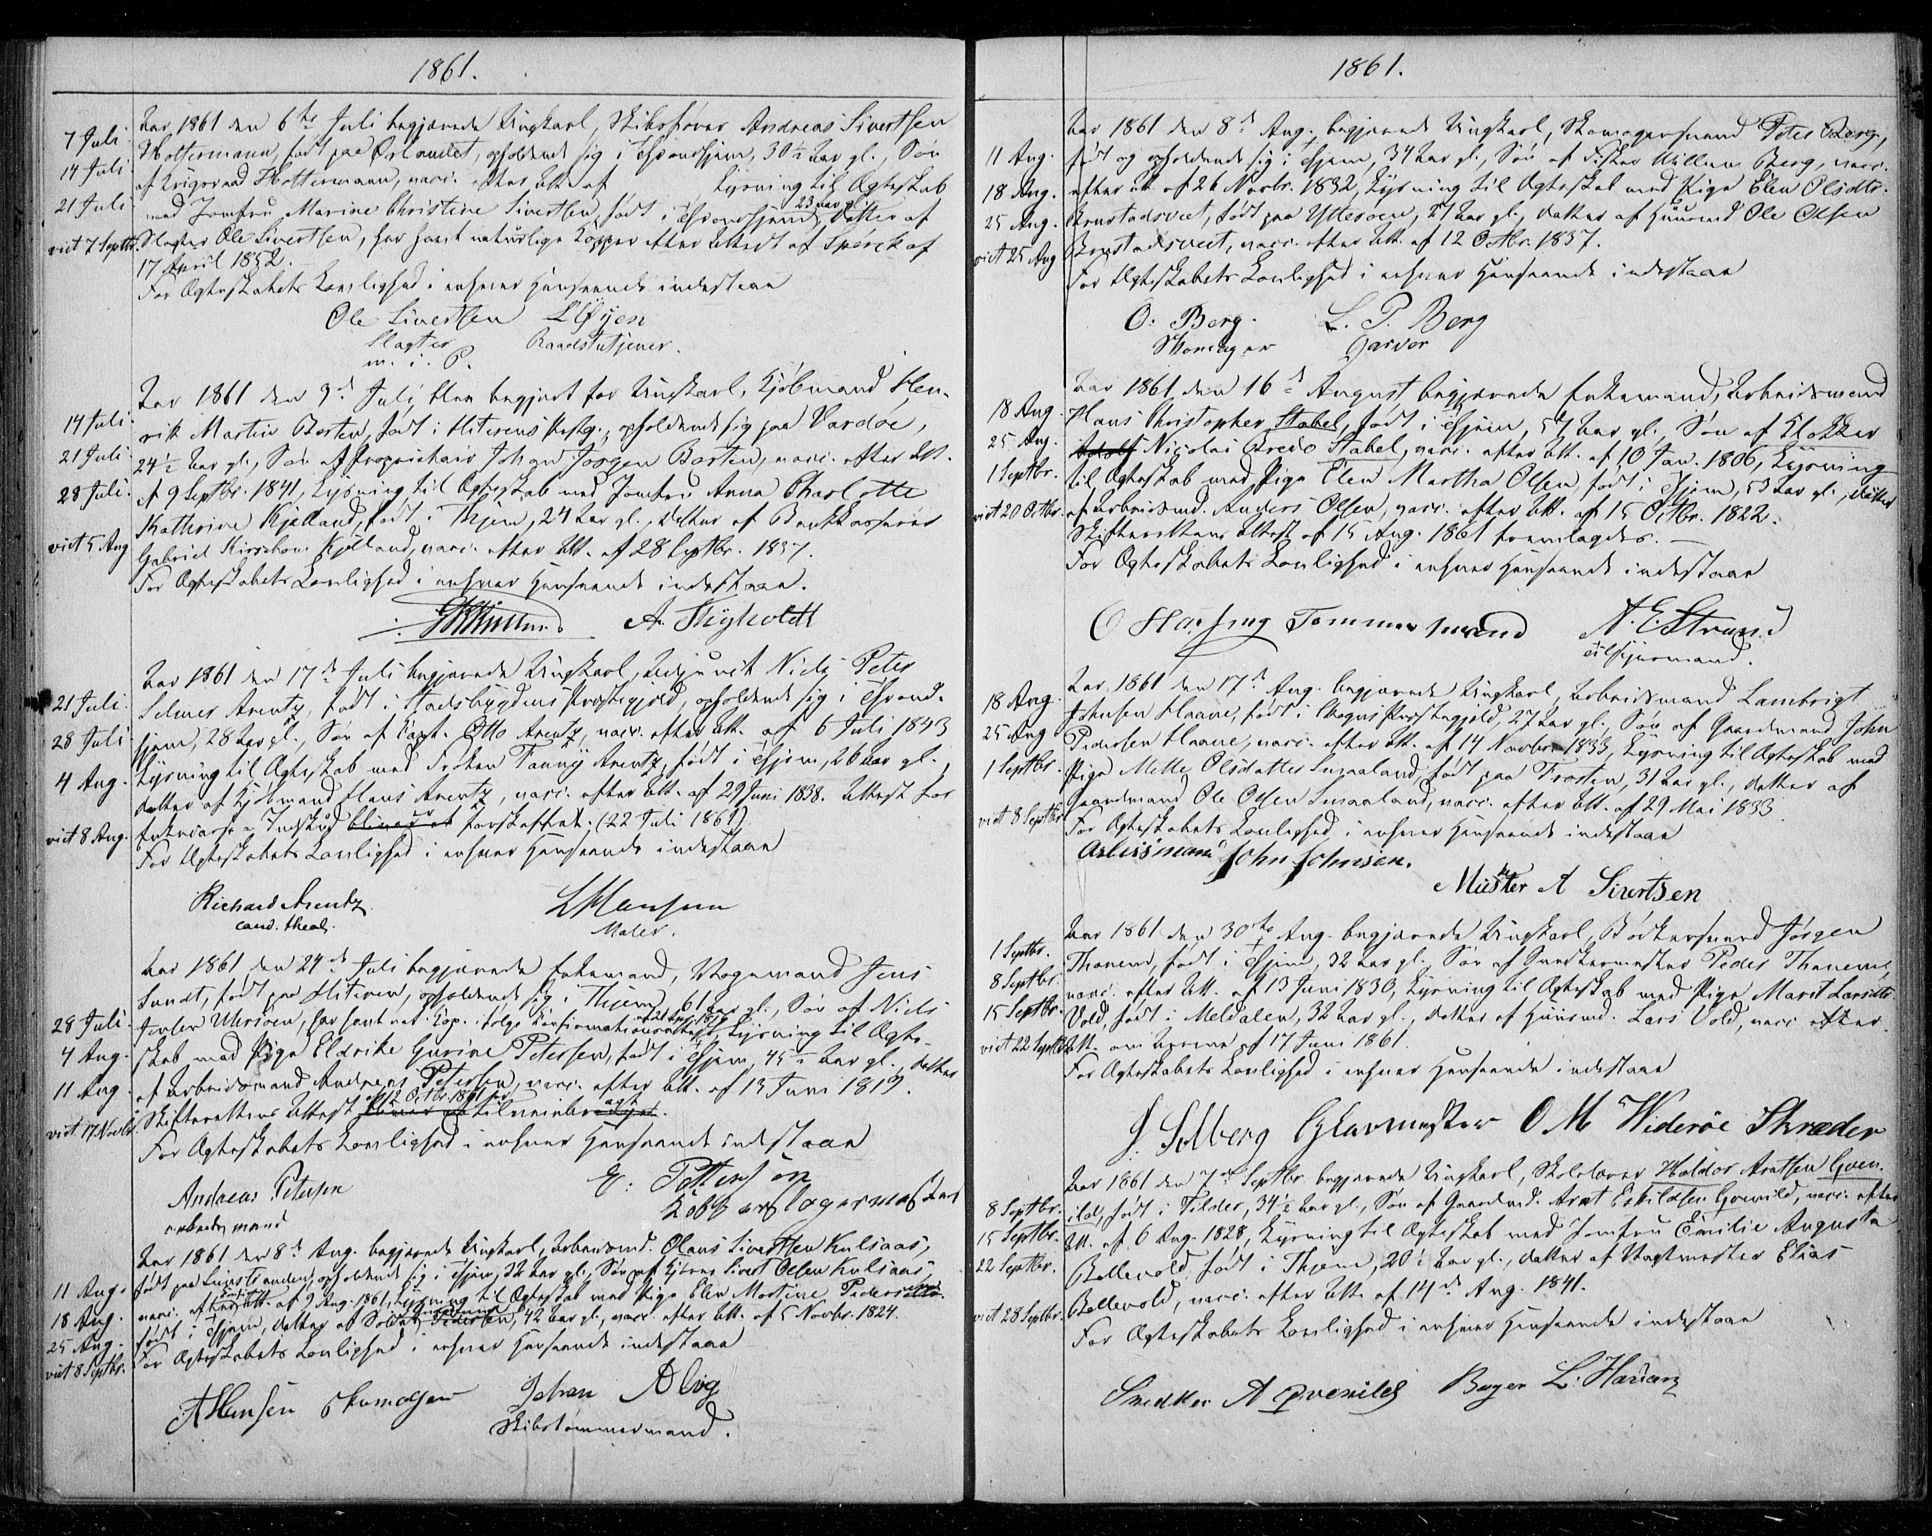 1861.
7 Juli.
14 Juli
21 Juli
viet 7 Septbr.
Aar 1861 den 6te Juli begjærede Ungkarl, Skibsfører Andreas Sivertsen
Hottermann, født paa Ørlandet, opholdende sig i Throndhjem, 30½ Aar gl., Søn
af Krigsraad Hottermann, vacc. efter Att. af Lysning til Ægteskab
med Jomfru Marine Christine Sivertsen, født i Throndhjem, 23 Aar gl. Datter af
Slagter Ole Sivertsen, har havt naturlige Kopper efter Attest af Lpörck af
17 April 1852.
For Ægteskabets Lovlighed i enhver Henseende indestaae
Ole Sivertsen L Øyen
Slagter Raadstutjener.
m. i. P.
14 Juli.
21 Juli
28 Juli.
viet 5 Aug
Aar 1861 den 9d Juli blev begjert for Ungkarl, Kjøbmand Hen-
rik Martin Borten, født i Hiterens Prstg., opholdende sig paa Vardøe,
24½ Aar gl., Søn af Proprietair Johan Jørgen Borten, vacc. efter Att.
af 9 Septbr. 1841, Lysning til Ægteskab med Jomfru Anna Charlotte
Kathrine Kjelland, født i Thjem, 24 Aar gl., Datter af Bankkasserer
Gabriel Kirsebom Kjelland, vacc. efter Att. af 28 Septbr. 1837.
For Ægteskabets Lovlighed i enhver Henseende indestaae.
21 Juli.
28 Juli
4 Aug.
viet 8 Aug.
Aar 1861 den 17d Juli begjærede Ungkarl, Adjunct Niels Peter
Selmer Arentz, født i Stadsbygdens Præstegjeld, opholdende sig i Thrond-
hjem, 28 Aar gl., Søn af Capt. Otto Arentz, vacc. efter Att. af 6 Juli 1843
Lysning til Ægteskab med Frøken Fanny Arentz, født i Thjem, 26 Aar gl.,
Datter af Kjøbmand Hans Arentz, vacc. efter Att. af 29 Juni 1838. Attest for
Enkecasse-Indskud bliver at forskaffet. (22 Juli 1861)
For Ægteskabets Lovlighed i enhver Henseende indestaae
Richard Arentz L Hansen
cand. theol. Maler.
28 Juli.
4 Aug.
11 Aug.
viet 17 Novbr.
Aar 1861 den 24de Juli begjærede Enkemand, Vognmand Jens
Sundt, født paa Hiteren, opholdende sig i Thjem, 61 Aar gl., Søn af Niels
skab med Pige Eldrike Gurine Petersen, født i Thjem, 45½ Aar gl., Datter
af Arbeidsmand Andreas Petersen, vacc. efter Att. af 13 Juni 1819.
Skifterettens Attest af 12 Octbr. 1861 er
For Ægteskabets Lovlighed i enhver Henseende indestaae
Andreas Petersen
arbeidsmand
11 Aug.
18 Aug.
25 Aug.
viet 8 Septbr.
Aar 1861 den 8d Aug. begjærede Ungkarl, Arbeidsmd. Olaus Sivertsen Kulsaas,
født paa Leinstranden, opholdende sig i Thjem, 32 Aar gl., Søn af Sivert Olsen Kulsaas
vacc. efter Att. af 9 Aug. 1861, Lysning til Ægteskab med Pige Elen Martine Pedersen
født i Thjem, Datter af Soldat Pedersen, 42 Aar gl., vacc. efter Att. af 5 Novbr. 1824.
For Ægteskabets Lovlighed i enhver Henseende indestaae
A Hansen Skomager Johan Alvig
Skibstømmermand.
1861.
11 Aug.
18 Aug.
25 Aug.
viet 25 Aug
Aar 1861 den 8d Aug. begjærede Ungkarl, Skomagersvend Peter Berg,
født og opholdende sig i Thjem, 34 Aar gl., Søn af Fisker Willum Berg, vacc.
efter Att. af 26 Novbr. 1832, Lysning til Ægteskab med Pige Elen Olsdtr.
Brustadsveet, født paa Ytterøen, 27 Aar gl., Datter af Huusmd Ole Olsen
Brustadsveet, vacc. efter Att. af 12 Octbr. 1837.
For Ægteskabets Lovlighed i enhver Henseende indestaae
O. Berg. L. P. Berg
Skomager Garver
18 Aug.
25 Aug.
1 Septbr.
viet 20 Octbr.
Aar 1861, den 16d August begjærede Enkemand, Arbeidsmand
Hans Christopher Stabel, født i Thjem, 57 Aar gl., Søn af Klokker
Adolf Nicolai Bredo Stabel, vacc. efter Att. af 10 Jan. 1806, Lysning
til Ægteskab med Pige Elen Martha Olsen, født i Thjem, 53 Aar gl., Datter
af Arbeidsmd. Anders Olsen, vacc. efter Att. af 15 Octbr. 1822.
Skifterettens Attest af 15 Aug. 1861 fremlagdes. —
For Ægteskabets Lovlighed i enhver Henseende indestaae
A. E. Strand
18 Aug.
25 Aug
1 Septbr.
viet 8 Septbr
Aar 1861 den 17d Aug. begjærede Ungkarl, Arbeidsmand Lambrigt
Johnsen Haave, født i Præstegjeld, 27 Aar gl., Søn af Gaardmand John
Pedersen Haave, vacc. efter Att. af 14 Novbr. 1833, Lysning til Ægteskab med
Pige Mette Olsdatter Smaaland, født paa Frosten, 31 Aar gl., Datter af
Gaardmand Ole Olsen Smaaland, vacc. efter Att. af 29 Mai 1833
For Ægteskabets Lovlighed i enhver Henseende indestaae
Arbeismand John Johnsen.
A Sivertsen
1 Septbr.
8 Septbr.
15 Septbr.
viet 22 Septbr.
Aar 1861 den 30te Aug. begjærede Ungkarl, Bødkersvend Jørgen
Thanem, født i Thjem, 32 Aar gl., Søn af Peder Thanem,
vacc. efter Att. af 13 Juni 1830, Lysning til Ægteskab med Pige Marit Larsdtr.
Vold, født i Meldalen, 32 Aar gl., Datter af Huusmd. Lars Vold, vacc. efter
Att. af 17 Juni 1861.
For Ægteskabets Lovlighed i enhver Henseende indestaae
J. Solberg Glarmester O M Widerøe Skræder
8 Septbr.
15 Septbr.
22 Septbr.
viet 28 Septbr.
Aar 1861 den 7d Septbr. begjærede Ungkarl, Skolelærer Haldor Arntsen Qven-
ild, født i Tilder, 34½ Aar gl., Søn af Gaardmd. Arnt Eskildsen Qvenild, vacc. efter
Att. af 6 Aug. 1828, Lysning til Ægteskab med Jomfru Emilie Augusta
Bollevold, født i Thjem, 20½ Aar gl., Datter af Vagtmester Elias
Bollevold, vacc. efter Att. af 14de Aug. 1841.
For Ægteskabets Lovlighed i enhver Henseende indestaae
Snedker A Qvenild Bager L. Harian